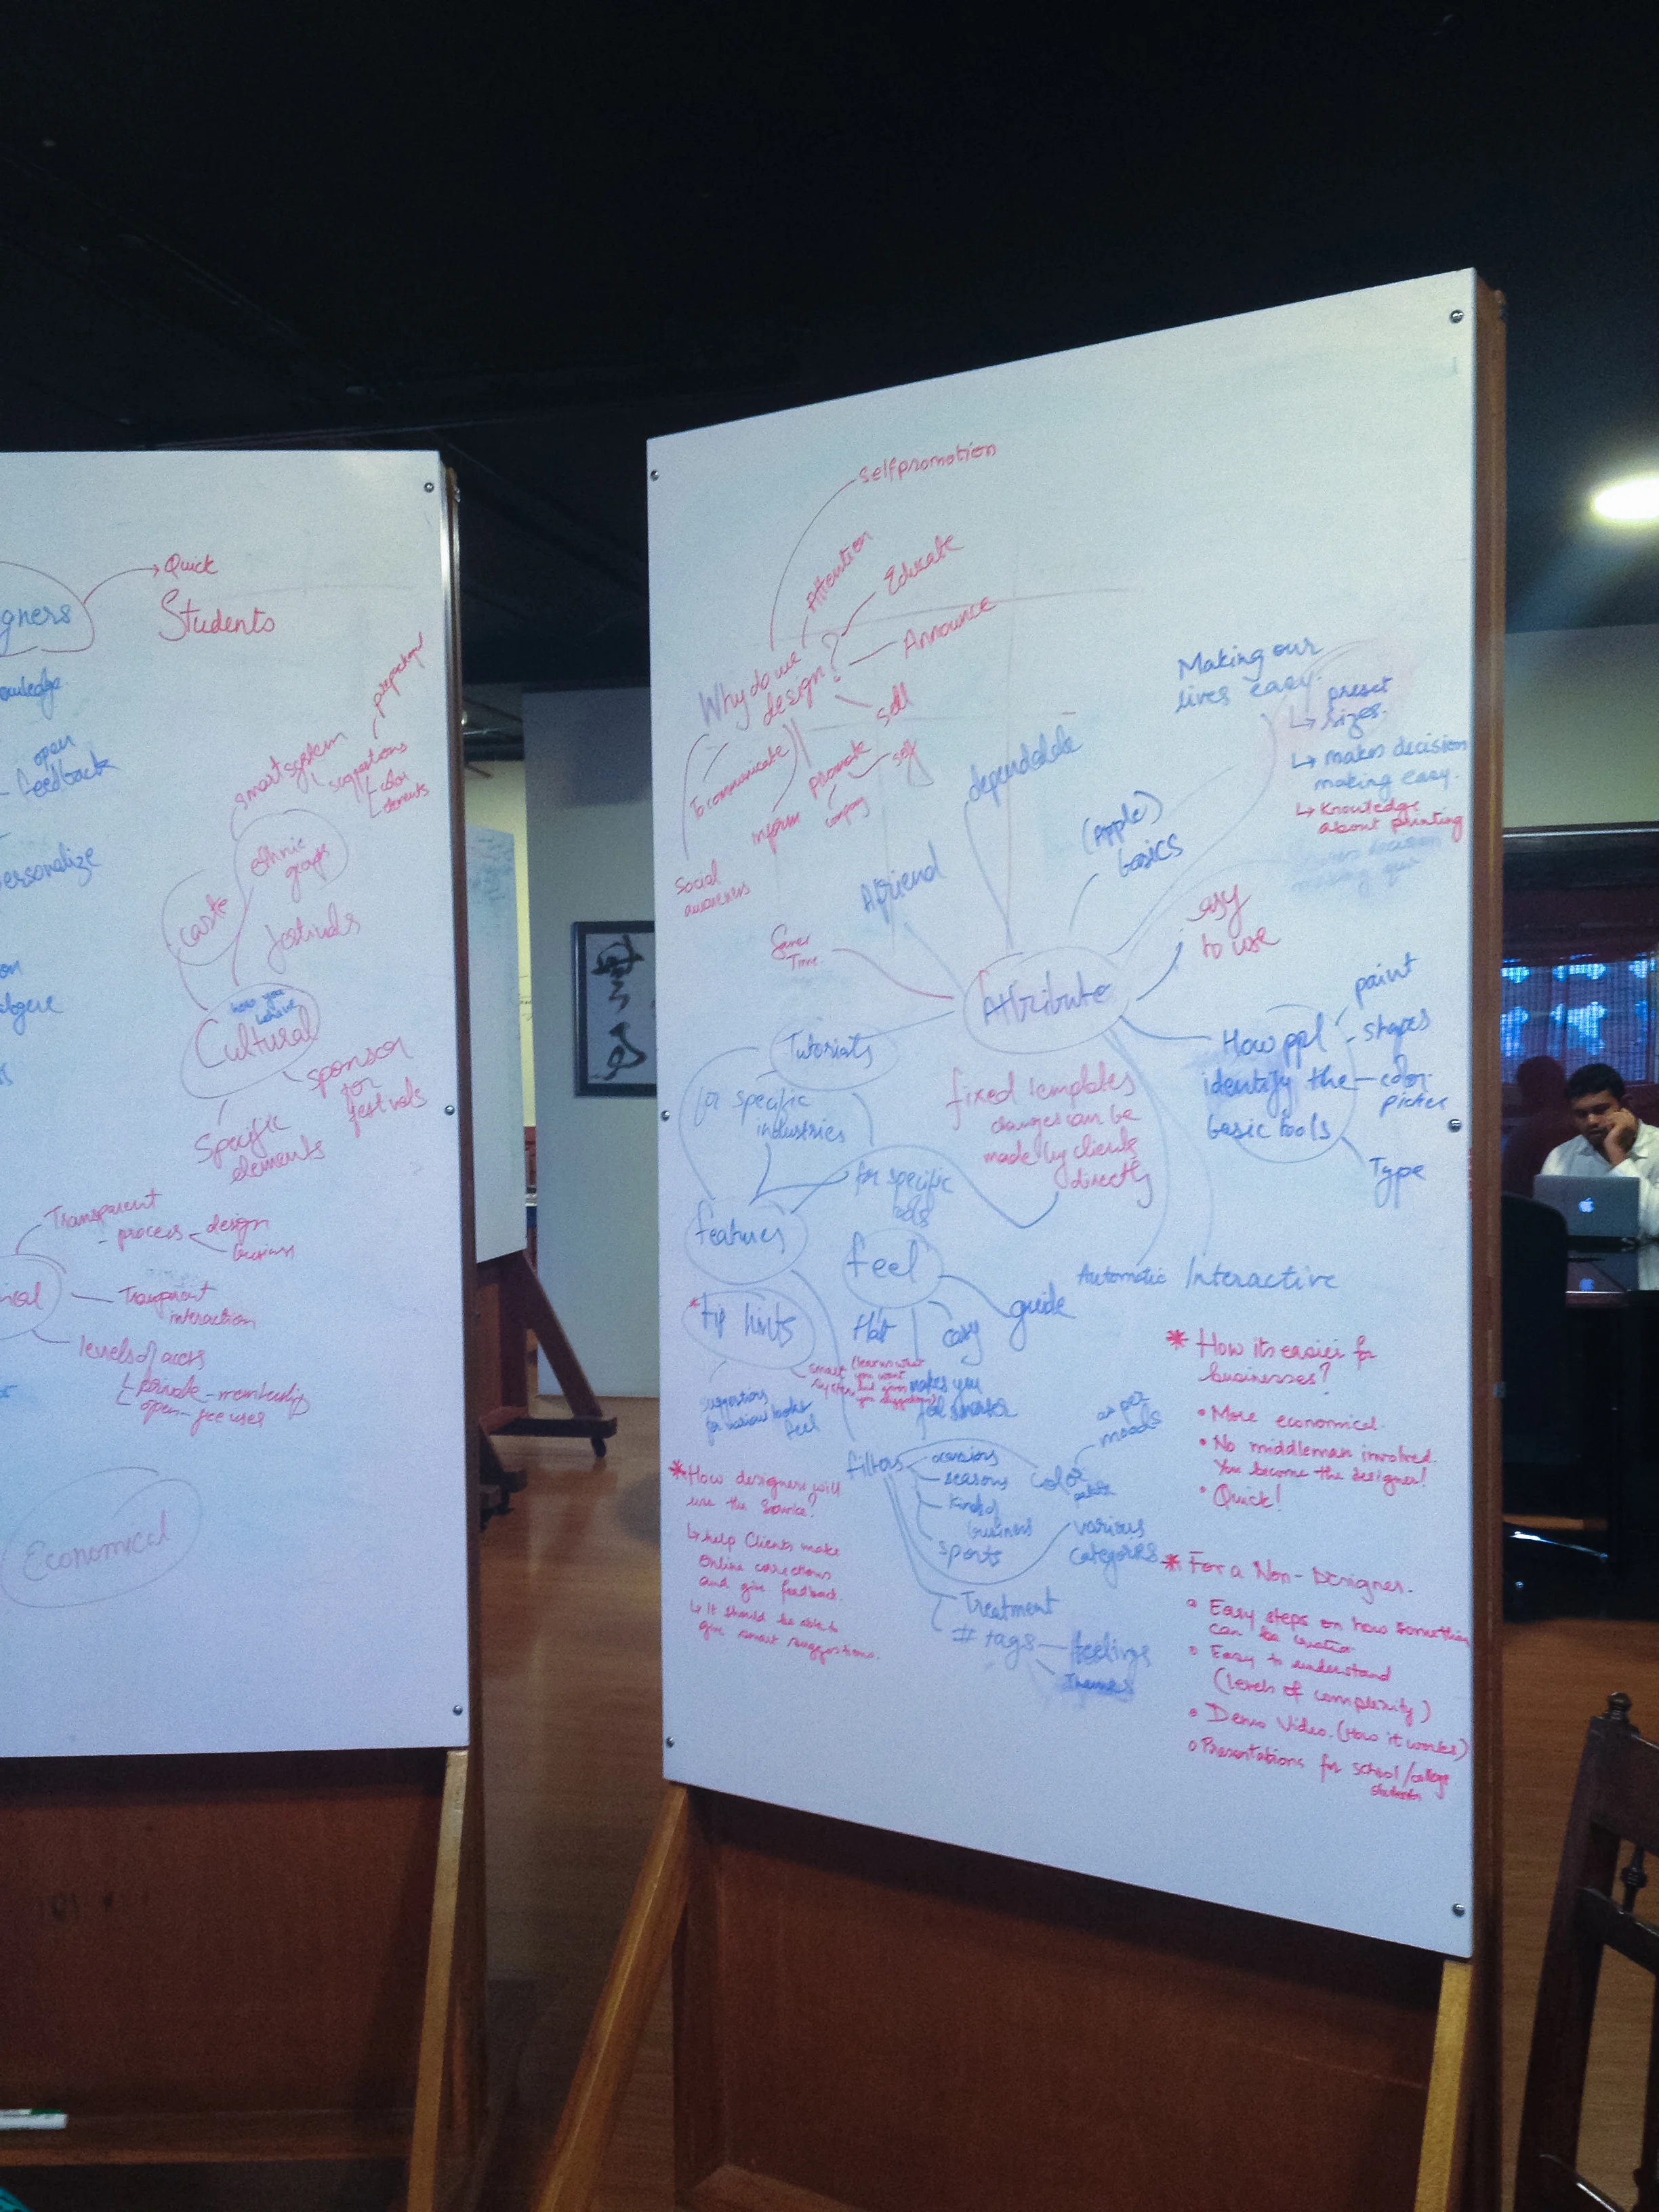 gners
Quick
Students
open
feedback
smart system
suggestions
color
elements
ersonalize
ethnic
groups
caste
festivals
how you
behave
Cultural
sponsor
for
festivals
Specific
elements
Transparent
process
design
business
Transparent
interaction
levels of access
private - membership
open - free uses
Economical
Selfpromotion
Attention
Educate
Announce
Why do we
design?
sell
To communicate
promote
self
company
inform
Social
awareness
dependable
A friend
(Apple)
basics
Making our
lives easy.
preset
sizes.
makes decision
making easy.
Knowledge
about printing
easy
to use
Saves
Time.
Attribute
Tutorials
for specific
industries
fixed templates
changes can be
made by clients
directly
How ppl
identify the
basic tools
paint
shapes
color
picker
Type
for specific
tools
features
feel
Automatic
Interactive
*tip hints
flat
easy
guide
smart
system
(learns what
you want
but gives
you suggestions)
makes you
feel smarter
suggestions
for various looks
feel
filters
occasions
seasons
kinds of
business
sports
color
palette
as per
moods
various
categories
Treatment
# tags
feelings
Themes
* How designers will
use the Source?
help Clients make
Online corrections
and give feedback.
It should be able to
give smart suggestions.
* How its easier for
businesses?
• More economical.
• No middleman involved.
You become the designer!
• Quick!
* For a Non-Designer.
Easy steps on how something
can be created
Easy to understand
(levels of complexity)
Demo Video. (How it works)
Presentations for school/college
students